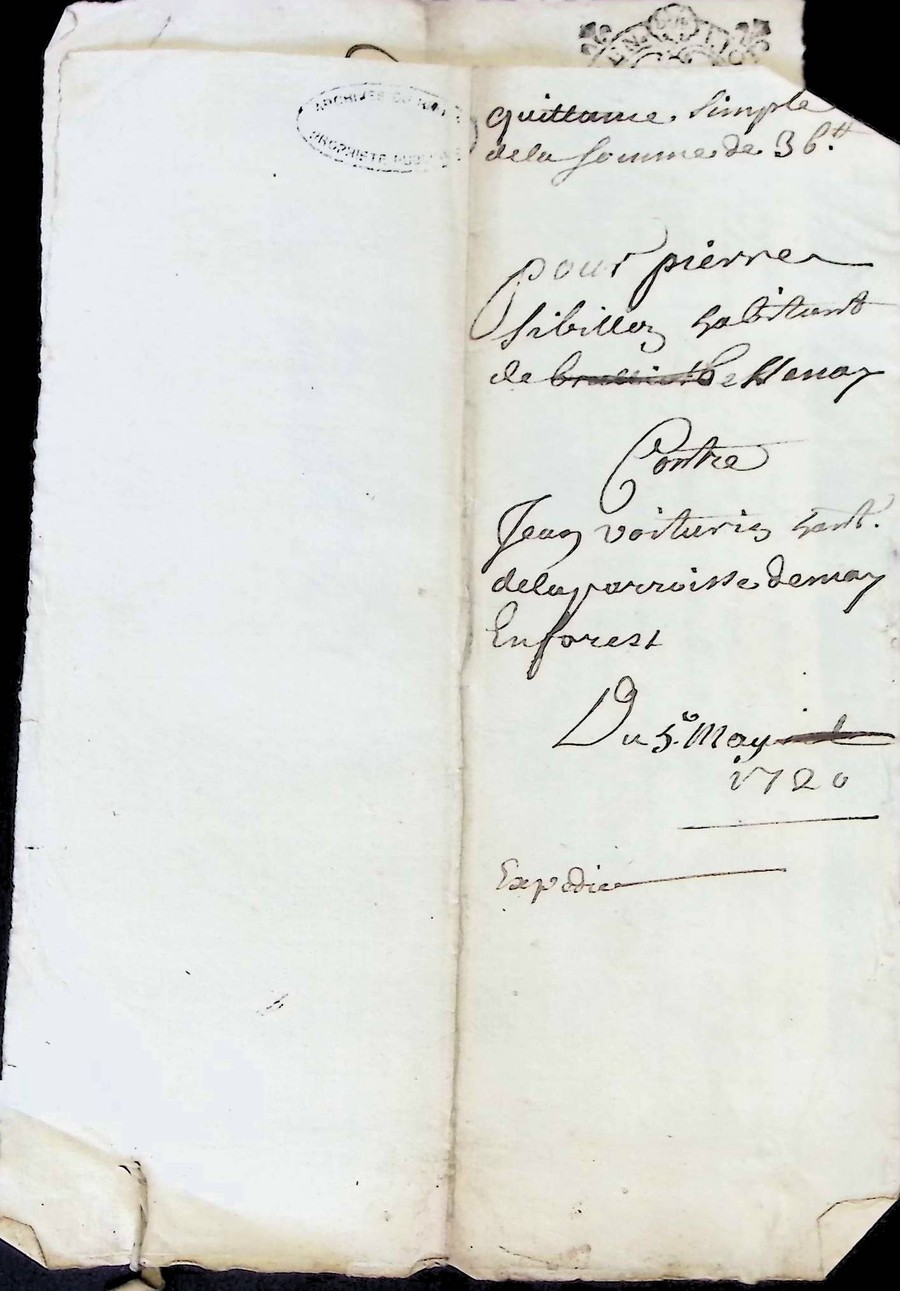 ARCHIVES DU
PROPRIETE PUBLIQUE
quittance Simple
de la Somme de 36.tt
pour pierre
Sibillez habitant
de
Contre
Jean voituriez hant.
de la parroisse demay
En forest
Du 5.e May
1720
Expediée